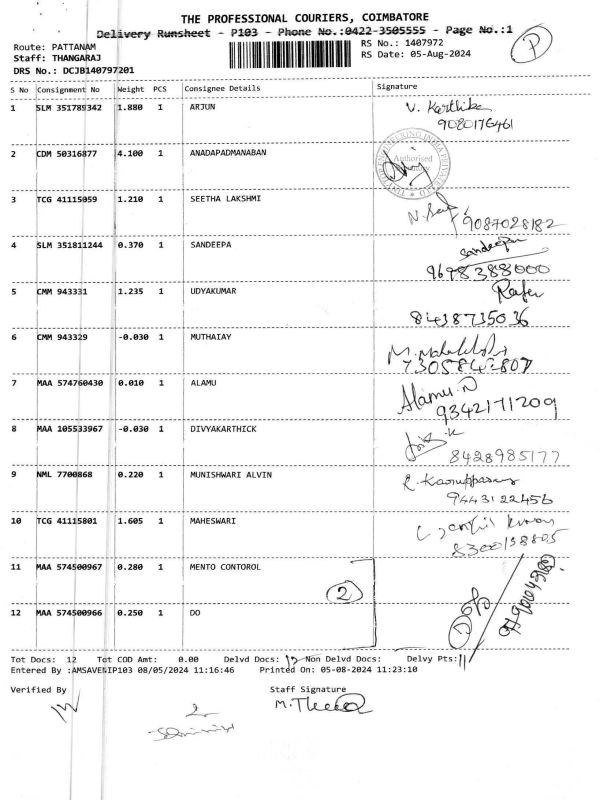 THE PROFESSIONAL COURIERS, COIMBATORE
Delivery Runsheet - P103 - Phone No.:0422-3505555 - Page No.:1
P
Route: PATTANAM
RS No.: 1407972
Staff: THANGARAJ
RS Date: 05-Aug-2024
DRS No.: DCJB140797201
S No Consignment No Weight PCS Consignee Details Signature
1 SLM 351789342 1.880 1 ARJUN V. Karthika
9080176461
2 CDM 50316877 4.100 1 ANADAPADMANABAN
Authorised
3 TCG 41115059 1.210 1 SEETHA LAKSHMI
9087028182
4 SLM 351811244 0.370 1 SANDEEPA Sandeepa
9698388000
5 CMM 943331 1.235 1 UDYAKUMAR
8438735036
6 CMM 943329 -0.030 1 MUTHAIAY
7305842807
7 MAA 574760430 0.010 1 ALAMU Alamu.N
9342171209
8 MAA 105533967 -0.030 1 DIVYAKARTHICK
8428985177
9 NML 7700868 0.220 1 MUNISHWARI ALVIN
9443122456
10 TCG 41115801 1.605 1 MAHESWARI
11 MAA 574500967 0.280 1 MENTO CONTOROL
2
12 MAA 574500966 0.250 1 DO
Tot Docs: 12 Tot COD Amt: 0.00 Delvd Docs: 12 Non Delvd Docs: Delvy Pts: 11
Entered By :AMSAVENIP103 08/05/2024 11:16:46 Printed On: 05-08-2024 11:23:10
Verified By Staff Signature